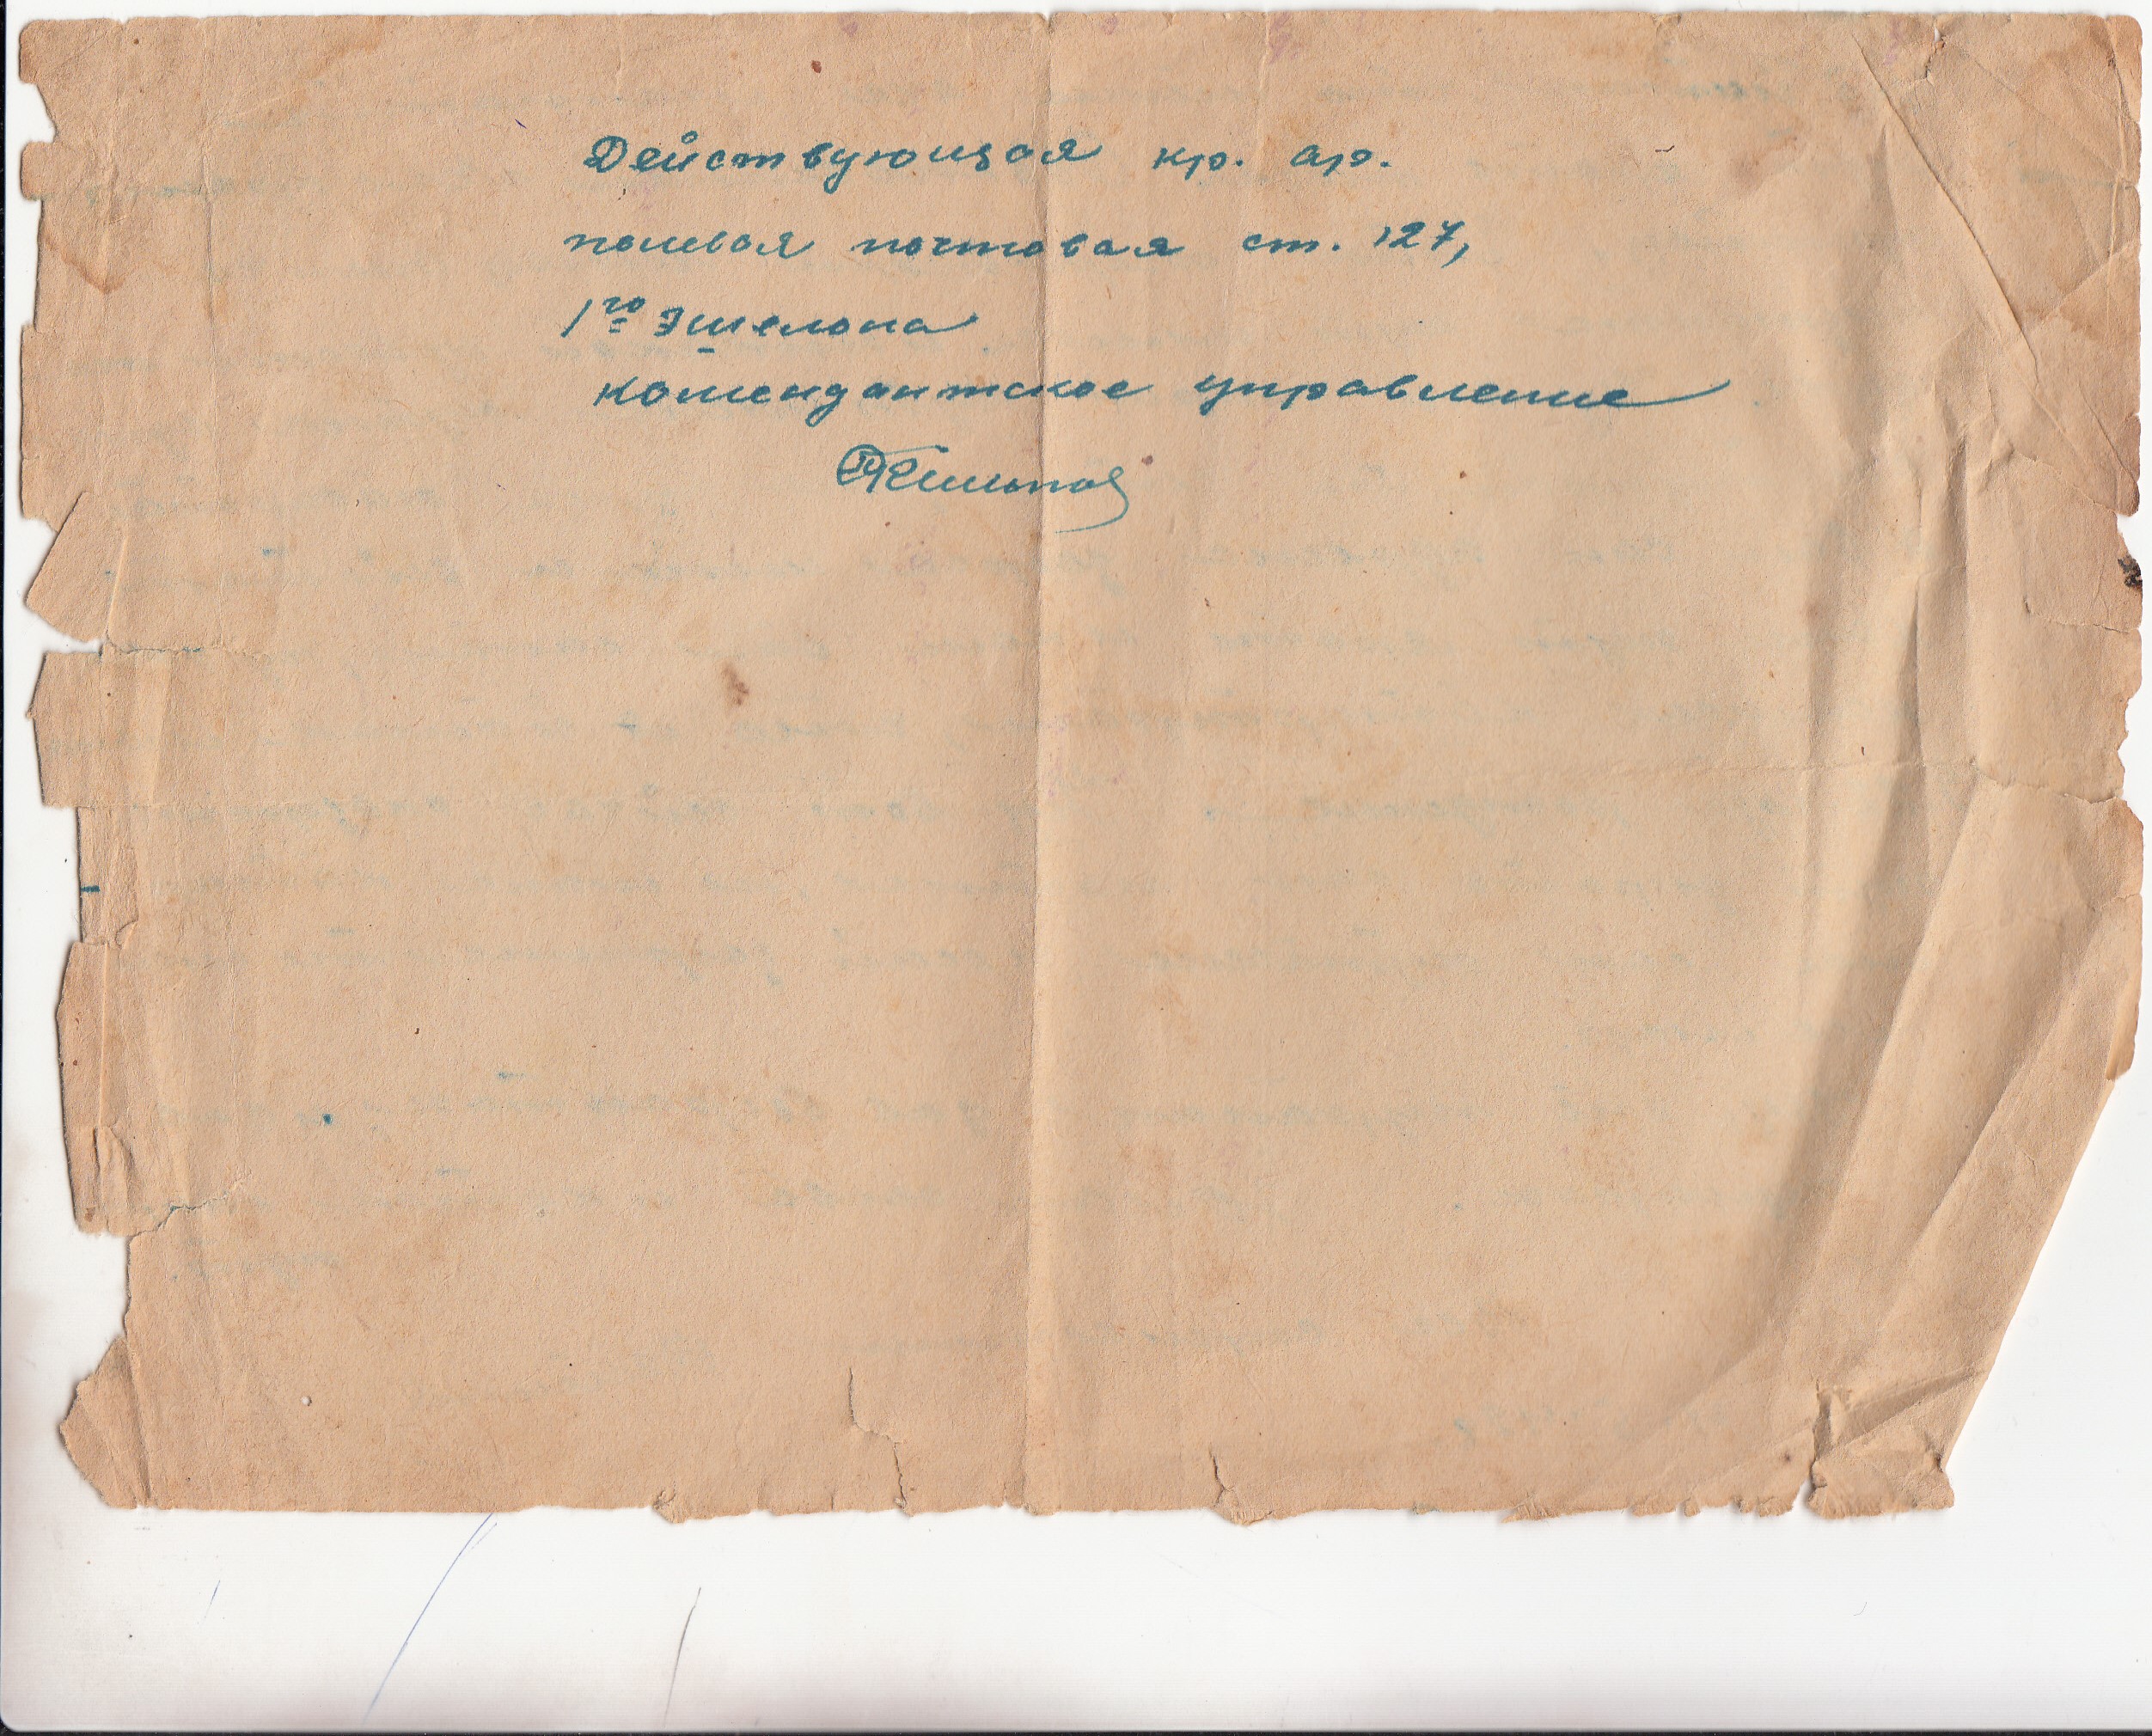 Действующая кр. ар.
полевая почтовая ст. 127,
1го эшелона
комендантское управление